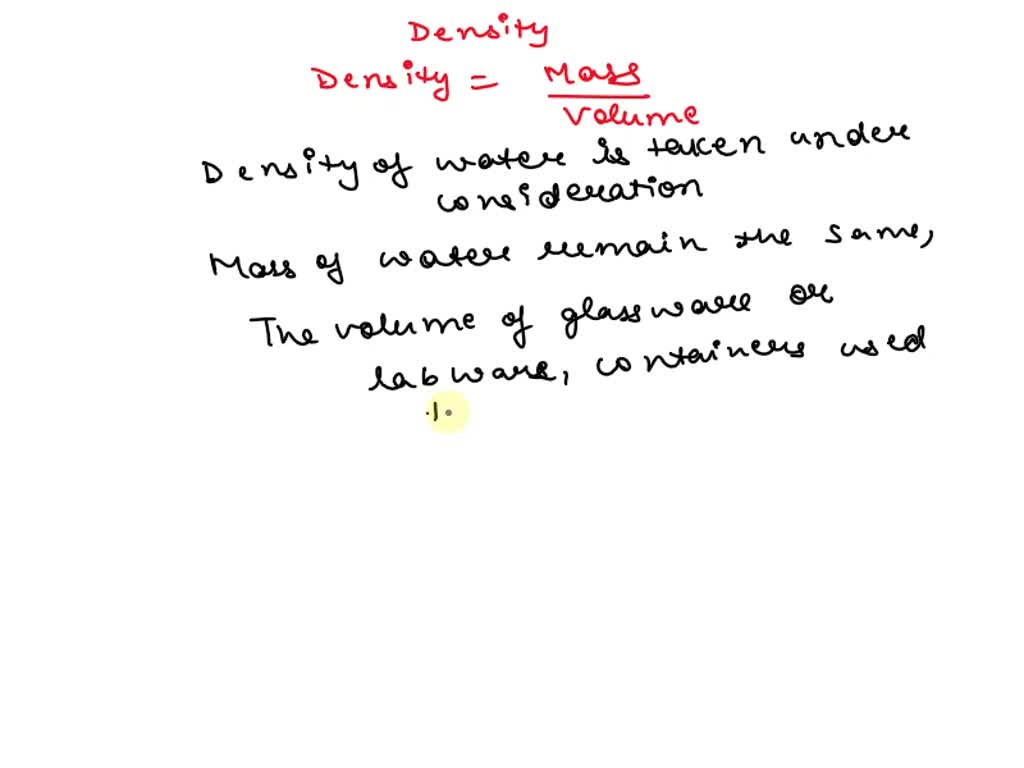 Density
Density = Mass
Volume
Density of water is taken under
consideration
Mass of water remain the same,
The volume of glassware or
labware, containers used